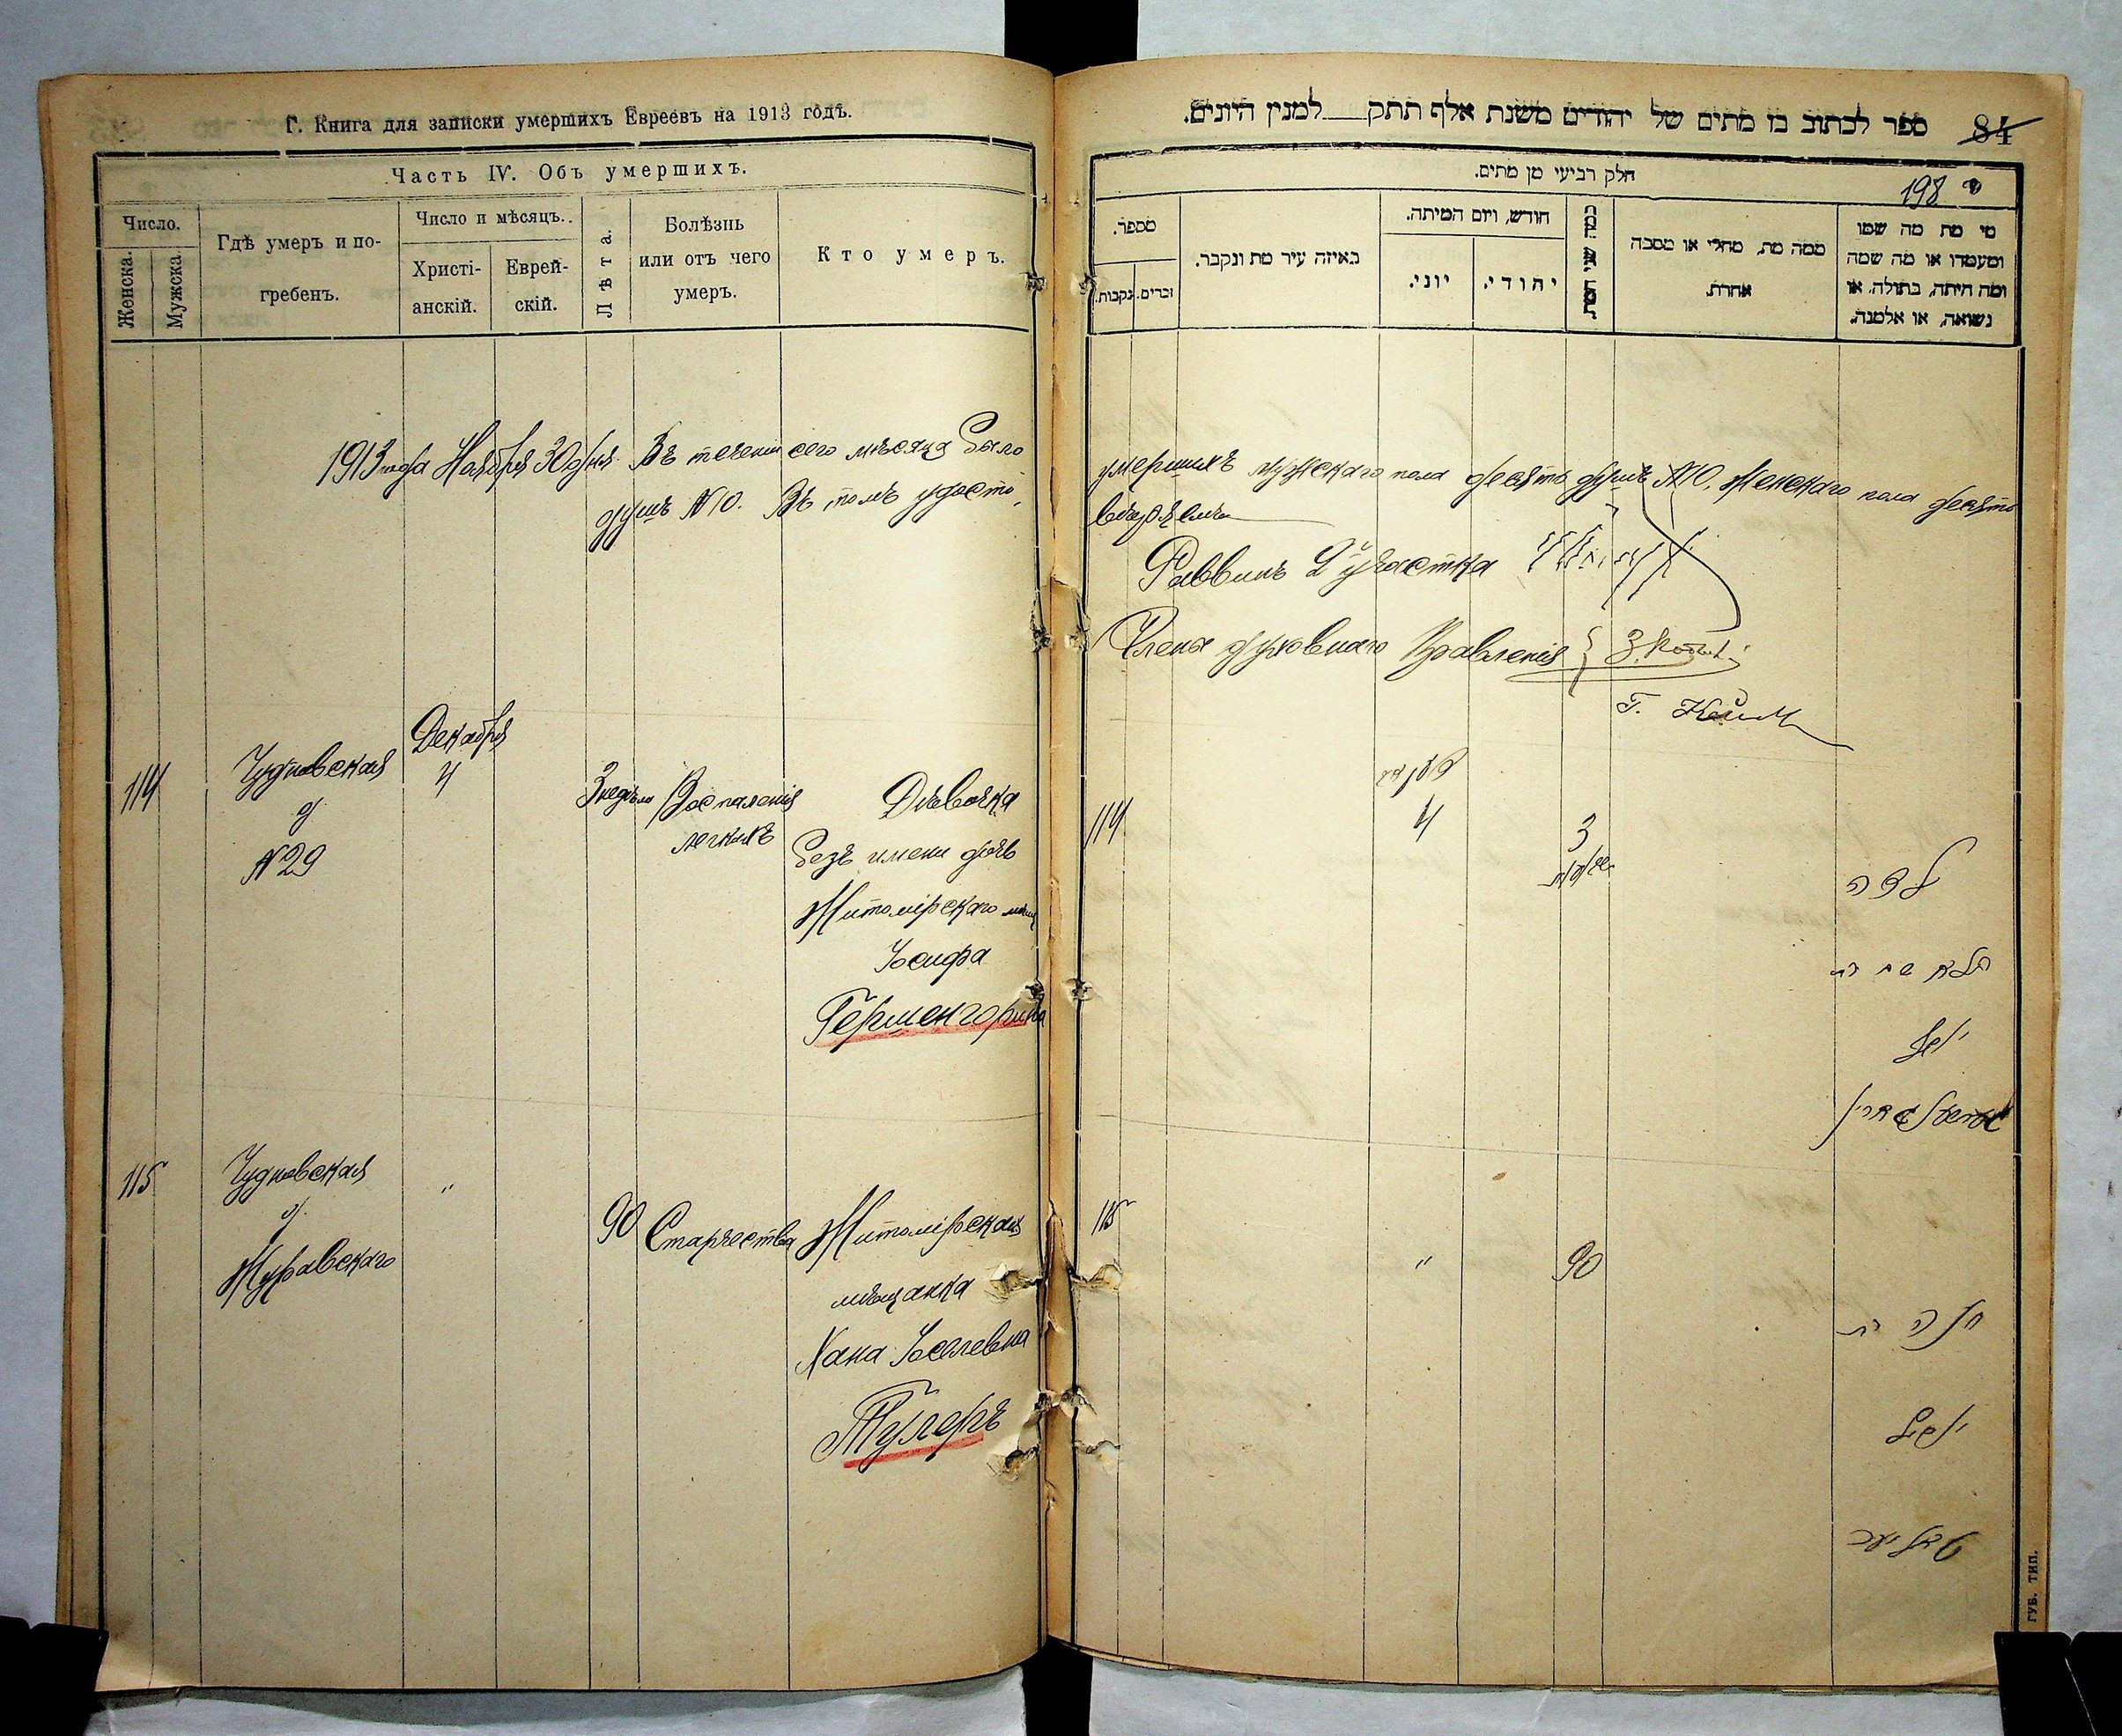 Г. Книга для записки умершихъ Евреевъ на 1913 годъ.
Часть IV. Объ умершихъ.
Число.
Женска.
Мужска.
Гдѣ умеръ и по-
гребенъ.
Число и мѣсяцъ.
Христі-
анскій.
Еврей-
скій.
Лѣта.
Болѣзнь
или отъ чего
умеръ.
Кто умеръ.
1913 года Ноября 30 дня. Въ теченіи сего мѣсяца было
душъ №10. Въ томъ удосто-
114
Чудновская
д
№29
Декабря
4
3 недѣли
Воспаленія
легкихъ
Дѣвочка
безъ имени дочь
Житомірскаго мѣщ
Іосифа
Гершенгорина
115
Чудновская
д.
Журавскаго
"
90
Старчества
Житомірская
мѣщанка
Хана Іоселевна
Туллеръ
ספר לכתוב בו מתים של יהודים משנת אלף תתק למנין היונים.
84
חלק רביעי מן מתים.
198
מספר.
זכרים.
נקבות.
באיזה עיר מת ונקבר.
חודש, ויום המיתה.
יוני.
יהודי.
כמה שני המת
ממה מת, מחלי או מסבה
אחרת.
מי מת מה שמו
ומעמדו או מה שמה
ומה היתה, בתולה, או
נשואה, או אלמנה.
умершихъ мужскаго пола десять душъ №10, женскаго пола десять
вѣряемъ
Раввинъ 2 участка
Члены духовнаго Правленія
114
4
3
ילדה
בלא שם בת
יוסף
115
"
90
חנה בת
יוסף
ГУБ. ТИП.